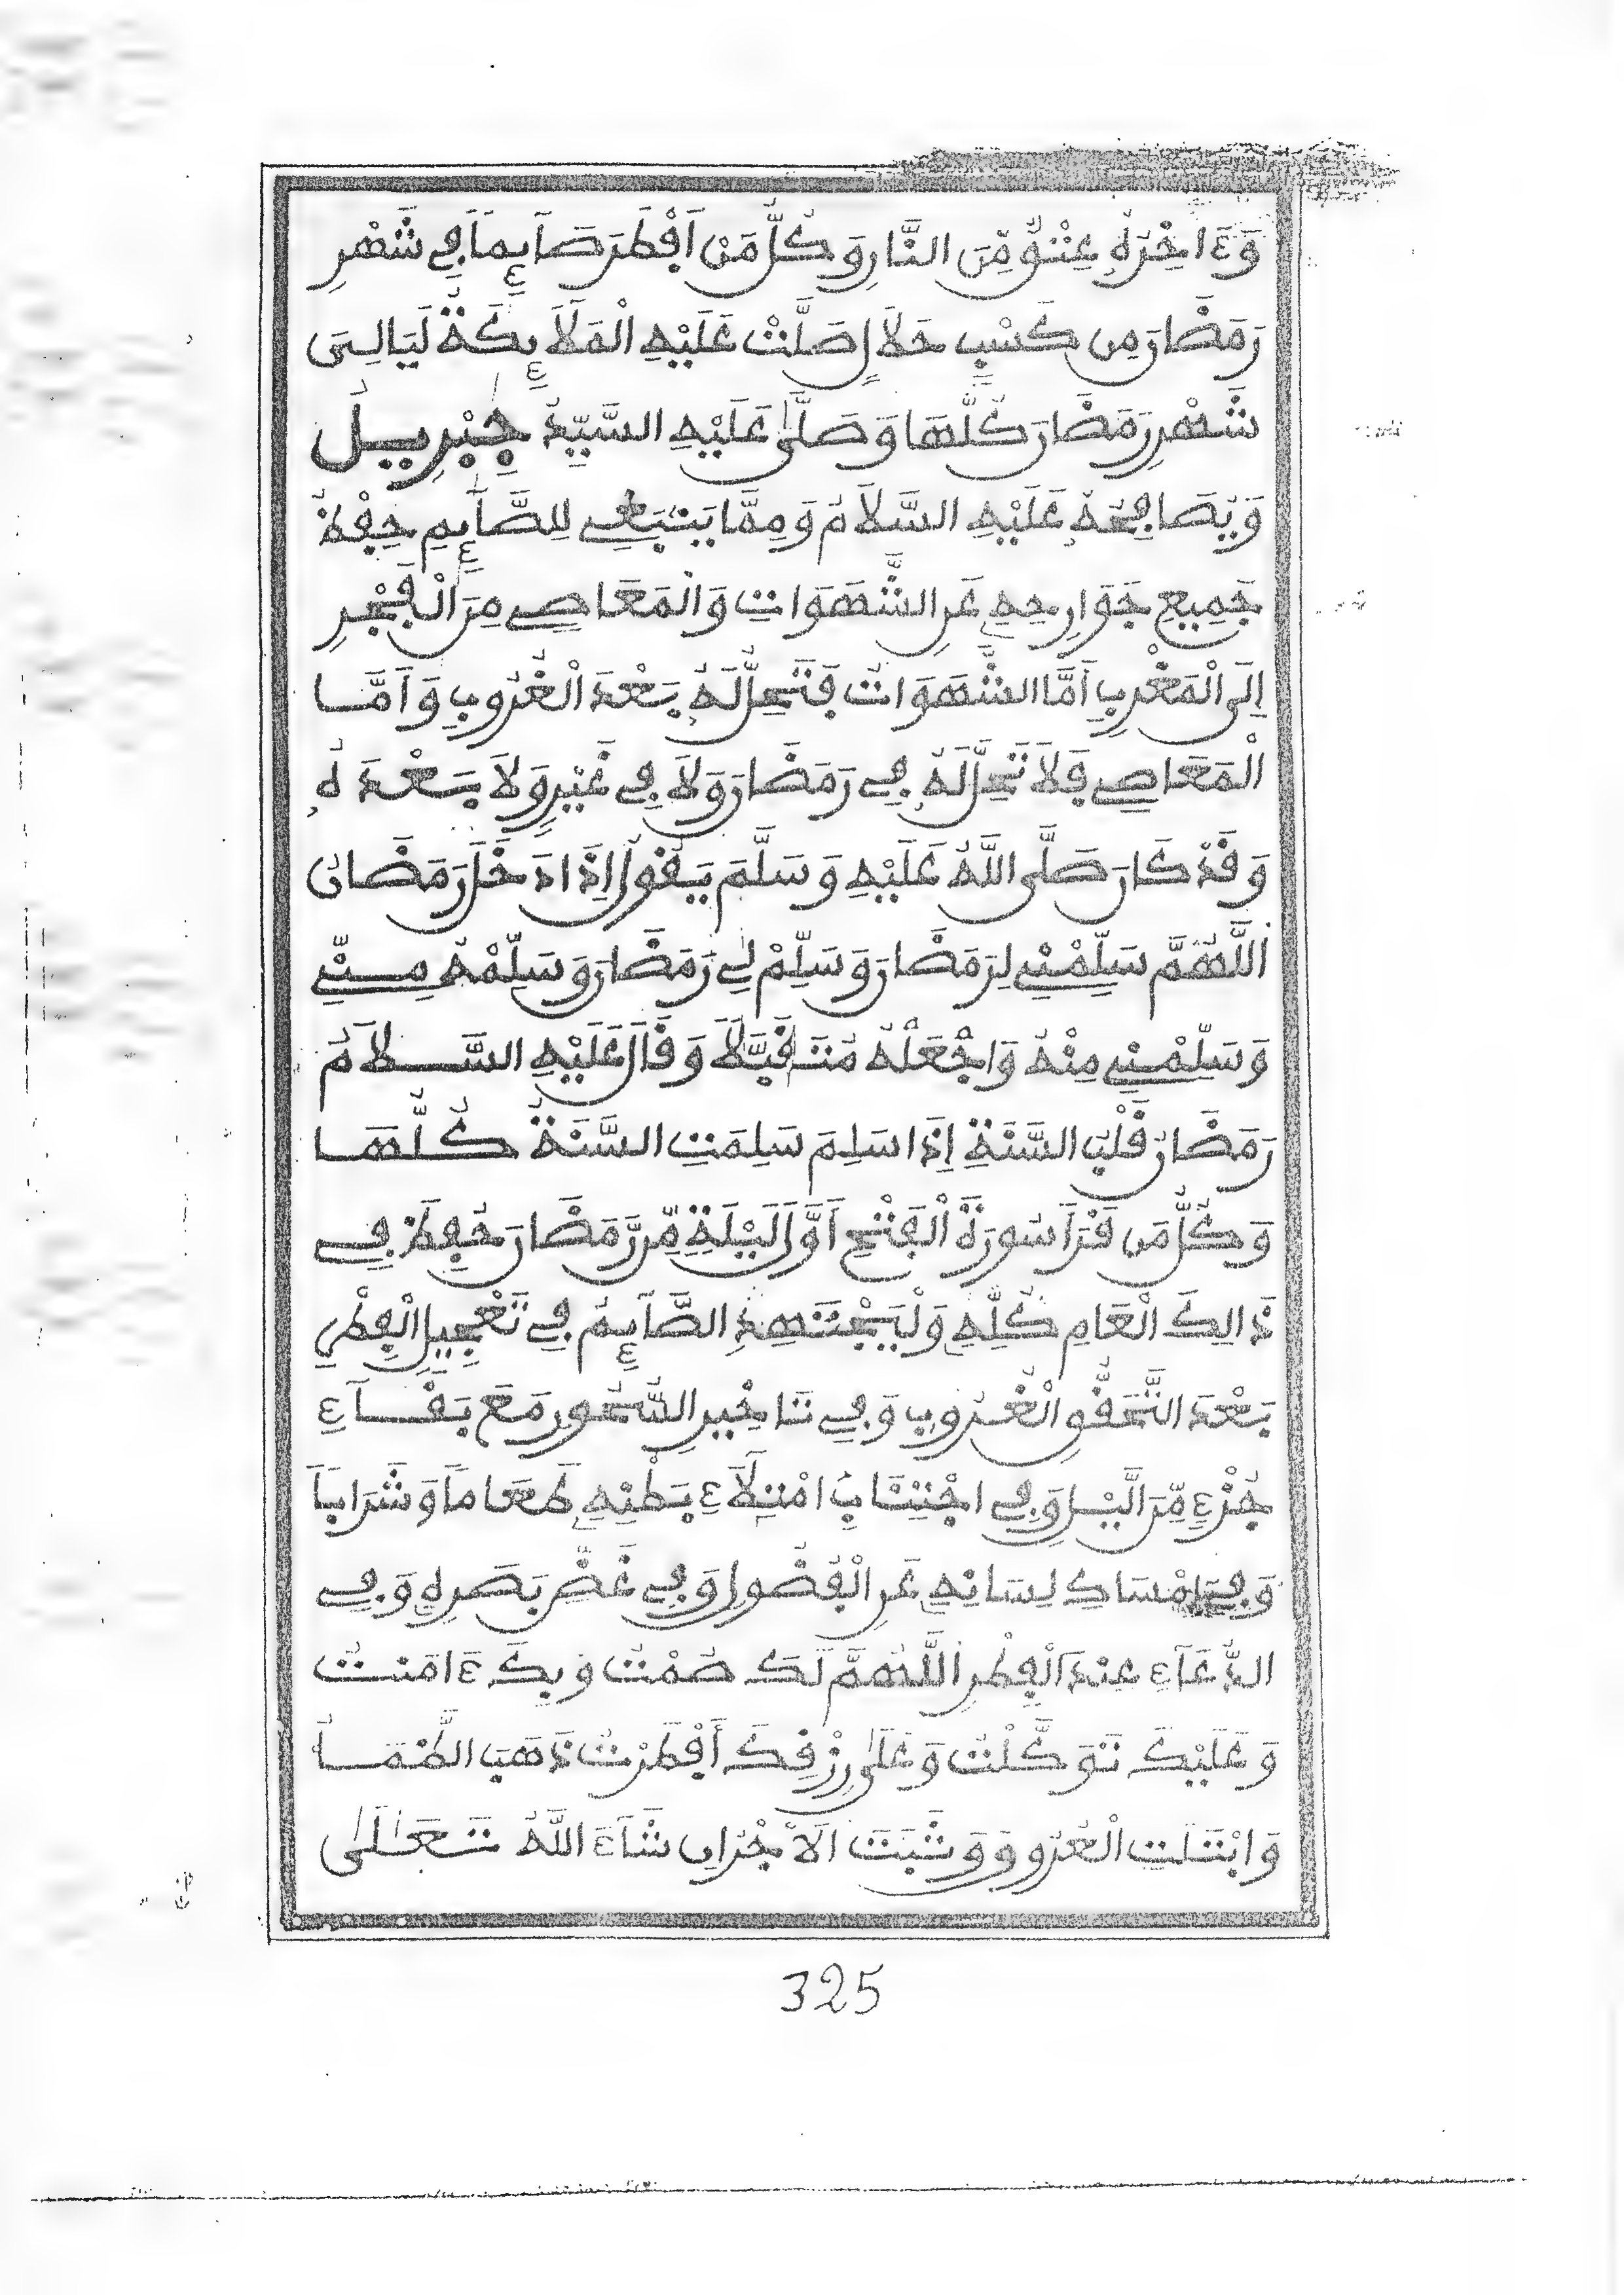 وَءَاخِرُهُ عِتْقٌ مِّنَ النَّارِ وَكُلُّ مَنْ اَفْطَرَ صَآئِماً فِي شَهْرِ
رَمَضَانَ مِن كَسْبٍ حَلاَلٍ صَلَّتْ عَلَيْهِ الْمَلاَئِكَةُ لَيَالِىَ
شَهْرِ رَمَضَانَ كُلَّهَا وَصَلَّىٰ عَلَيْهِ السَّيِّدُ جِبْرِيلُ
وَيُصَافِحُهُ عَلَيْهِ السَّلاَمُ وَمِمَّا يَنْبَغِي لِلصَّآئِمِ حِفْظُ
جَمِيعِ جَوَارِحِهِ عَنِ الشَّهَوَاتِ وَالْمَعَاصِي مِنَ الْفَجْرِ
اِلَى الْمَغْرِبِ اَمَّا الشَّهَوَاتُ فَتَحِلُّ لَهُ بَعْدَ الْغُرُوبِ وَاَمَّا
الْمَعَاصِي فَلاَ تَحِلُّ لَهُ فِي رَمَضَانَ وَلاَ فِي غَيْرِهِ وَلاَ بَعْدَهُ
وَقَدْ كَانَ صَلَّى اللَّهُ عَلَيْهِ وَسَلَّمَ يَقُولُ اِذَا دَخَلَ رَمَضَانُ
اللَّهُمَّ سَلِّمْنِي لِرَمَضَانَ وَسَلِّمْ لِي رَمَضَانَ وَسَلِّمْهُ مِنِّي
وَسَلِّمْنِي مِنْهُ وَاجْعَلْهُ مُتَقَبَّلاً وَقَالَ عَلَيْهِ السَّلاَمُ
رَمَضَانُ قَلْبُ السَّنَةِ اِذَا سَلِمَ سَلِمَتِ السَّنَةُ كُلُّهَا
وَكُلُّ مَن قَرَأَ سُورَةَ الْفَتْحِ اَوَّلَ لَيْلَةٍ مِّن رَّمَضَانَ حُفِظَ فِي
ذَالِكَ الْعَامِ كُلِّهِ وَلْيَجْتَهِدِ الصَّآئِمُ فِي تَعْجِيلِ الْفِطْرِ
بَعْدَ التَّحَقُّقِ الْغُرُوبِ وَفِي تَاخِيرِ السُّحُورِ مَعَ بَقَآءِ
جُزْءٍ مِّنَ الَّيْلِ وَفِي اجْتِنَابِ امْتِلَآءِ بَطْنِهِ طَعَاماً وَشَرَاباً
وَفِي اِمْسَاكِ لِسَانِهِ عَنِ الْفُضُولِ وَفِي غَضِّ بَصَرِهِ وَفِي
الدُّعَآءِ عِنْدَ الْفِطْرِ اللَّهُمَّ لَكَ صُمْتُ وَبِكَ ءَامَنْتُ
وَعَلَيْكَ تَوَكَّلْتُ وَعَلَىٰ رِزْقِكَ أَفْطَرْتُ ذَهَبَ الظَّمَأُ
وَابْتَلَتِ الْعُرُوقُ وَثَبَتَ الاَجْرُ اِن شَآءَ اللَّهُ تَعَالَىٰ
325